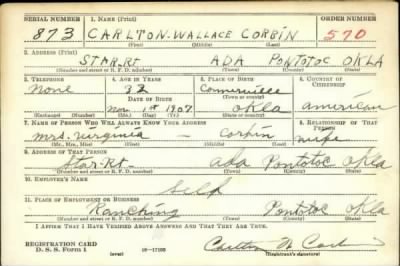 SERIAL NUMBER 1. NAME (Print) ORDER NUMBER
873 CARLTON-WALLACE CORBIN 570
(First) (Middle) (Last)
2. ADDRESS (Print)
STAR-Rt ADA PONTOTOC OKLA
(Number and street or R. F. D. number) (Town) (County) (State)
3. TELEPHONE 4. AGE IN YEARS 5. PLACE OF BIRTH 6. COUNTRY OF CITIZENSHIP
None 32 Connerville
DATE OF BIRTH (Town or county)
Nov 1st 1907 Okla american
(Exchange) (Number) (Mo.) (Day) (Yr.) (State or country)
7. NAME OF PERSON WHO WILL ALWAYS KNOW YOUR ADDRESS 8. RELATIONSHIP OF THAT PERSON
Mrs. Virginia - Corbin wife
(Mr., Mrs., Miss) (First) (Middle) (Last)
9. ADDRESS OF THAT PERSON
Star-Rt- ada Pontotoc Okla
(Number and street or R. F. D. number) (Town) (County) (State)
10. EMPLOYER'S NAME
Self
11. PLACE OF EMPLOYMENT OR BUSINESS
Ranching Pontotoc Okla
(Number and street or R. F. D. number) (Town) (County) (State)
I AFFIRM THAT I HAVE VERIFIED ABOVE ANSWERS AND THAT THEY ARE TRUE.
REGISTRATION CARD
D. S. S. Form 1 (over) 16-17105 Carlton W Corbin
(Registrant's signature)